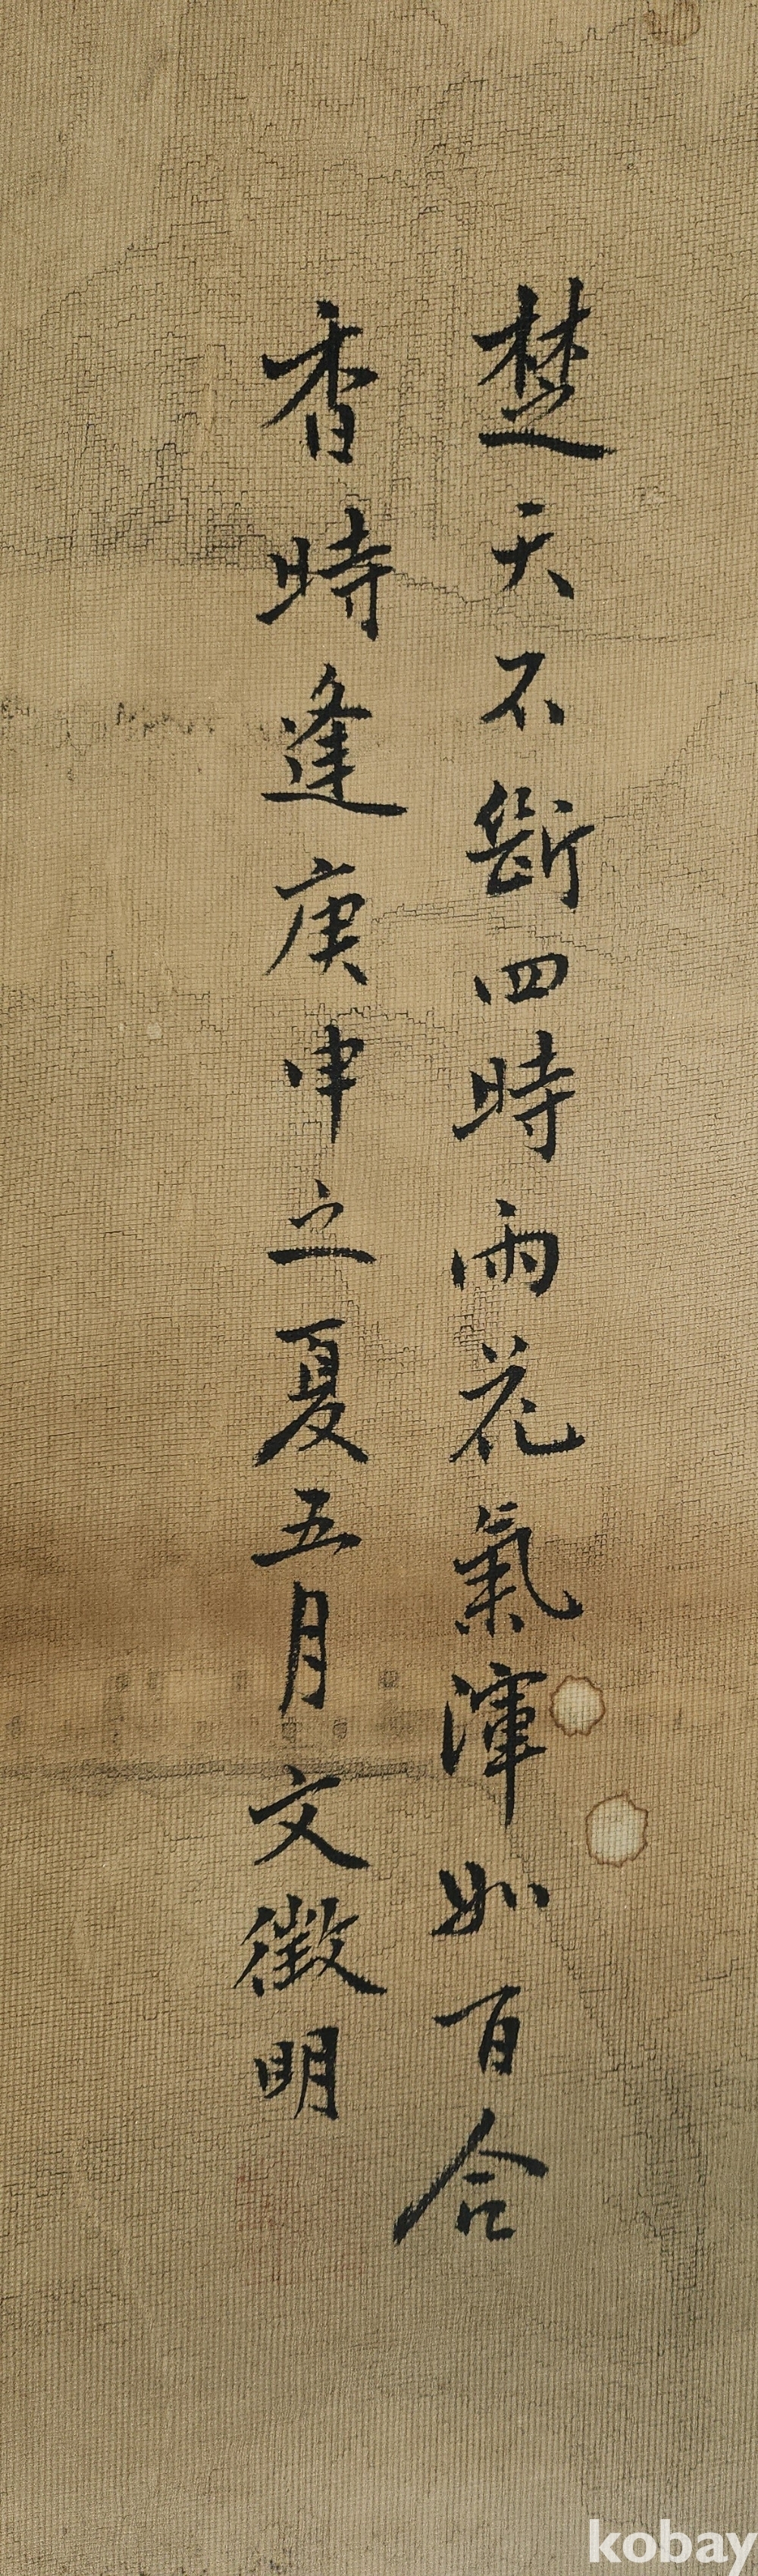 楚天不斷四時雨花氣渾如百合
香時逢庚申之夏五月文徵明
kobay